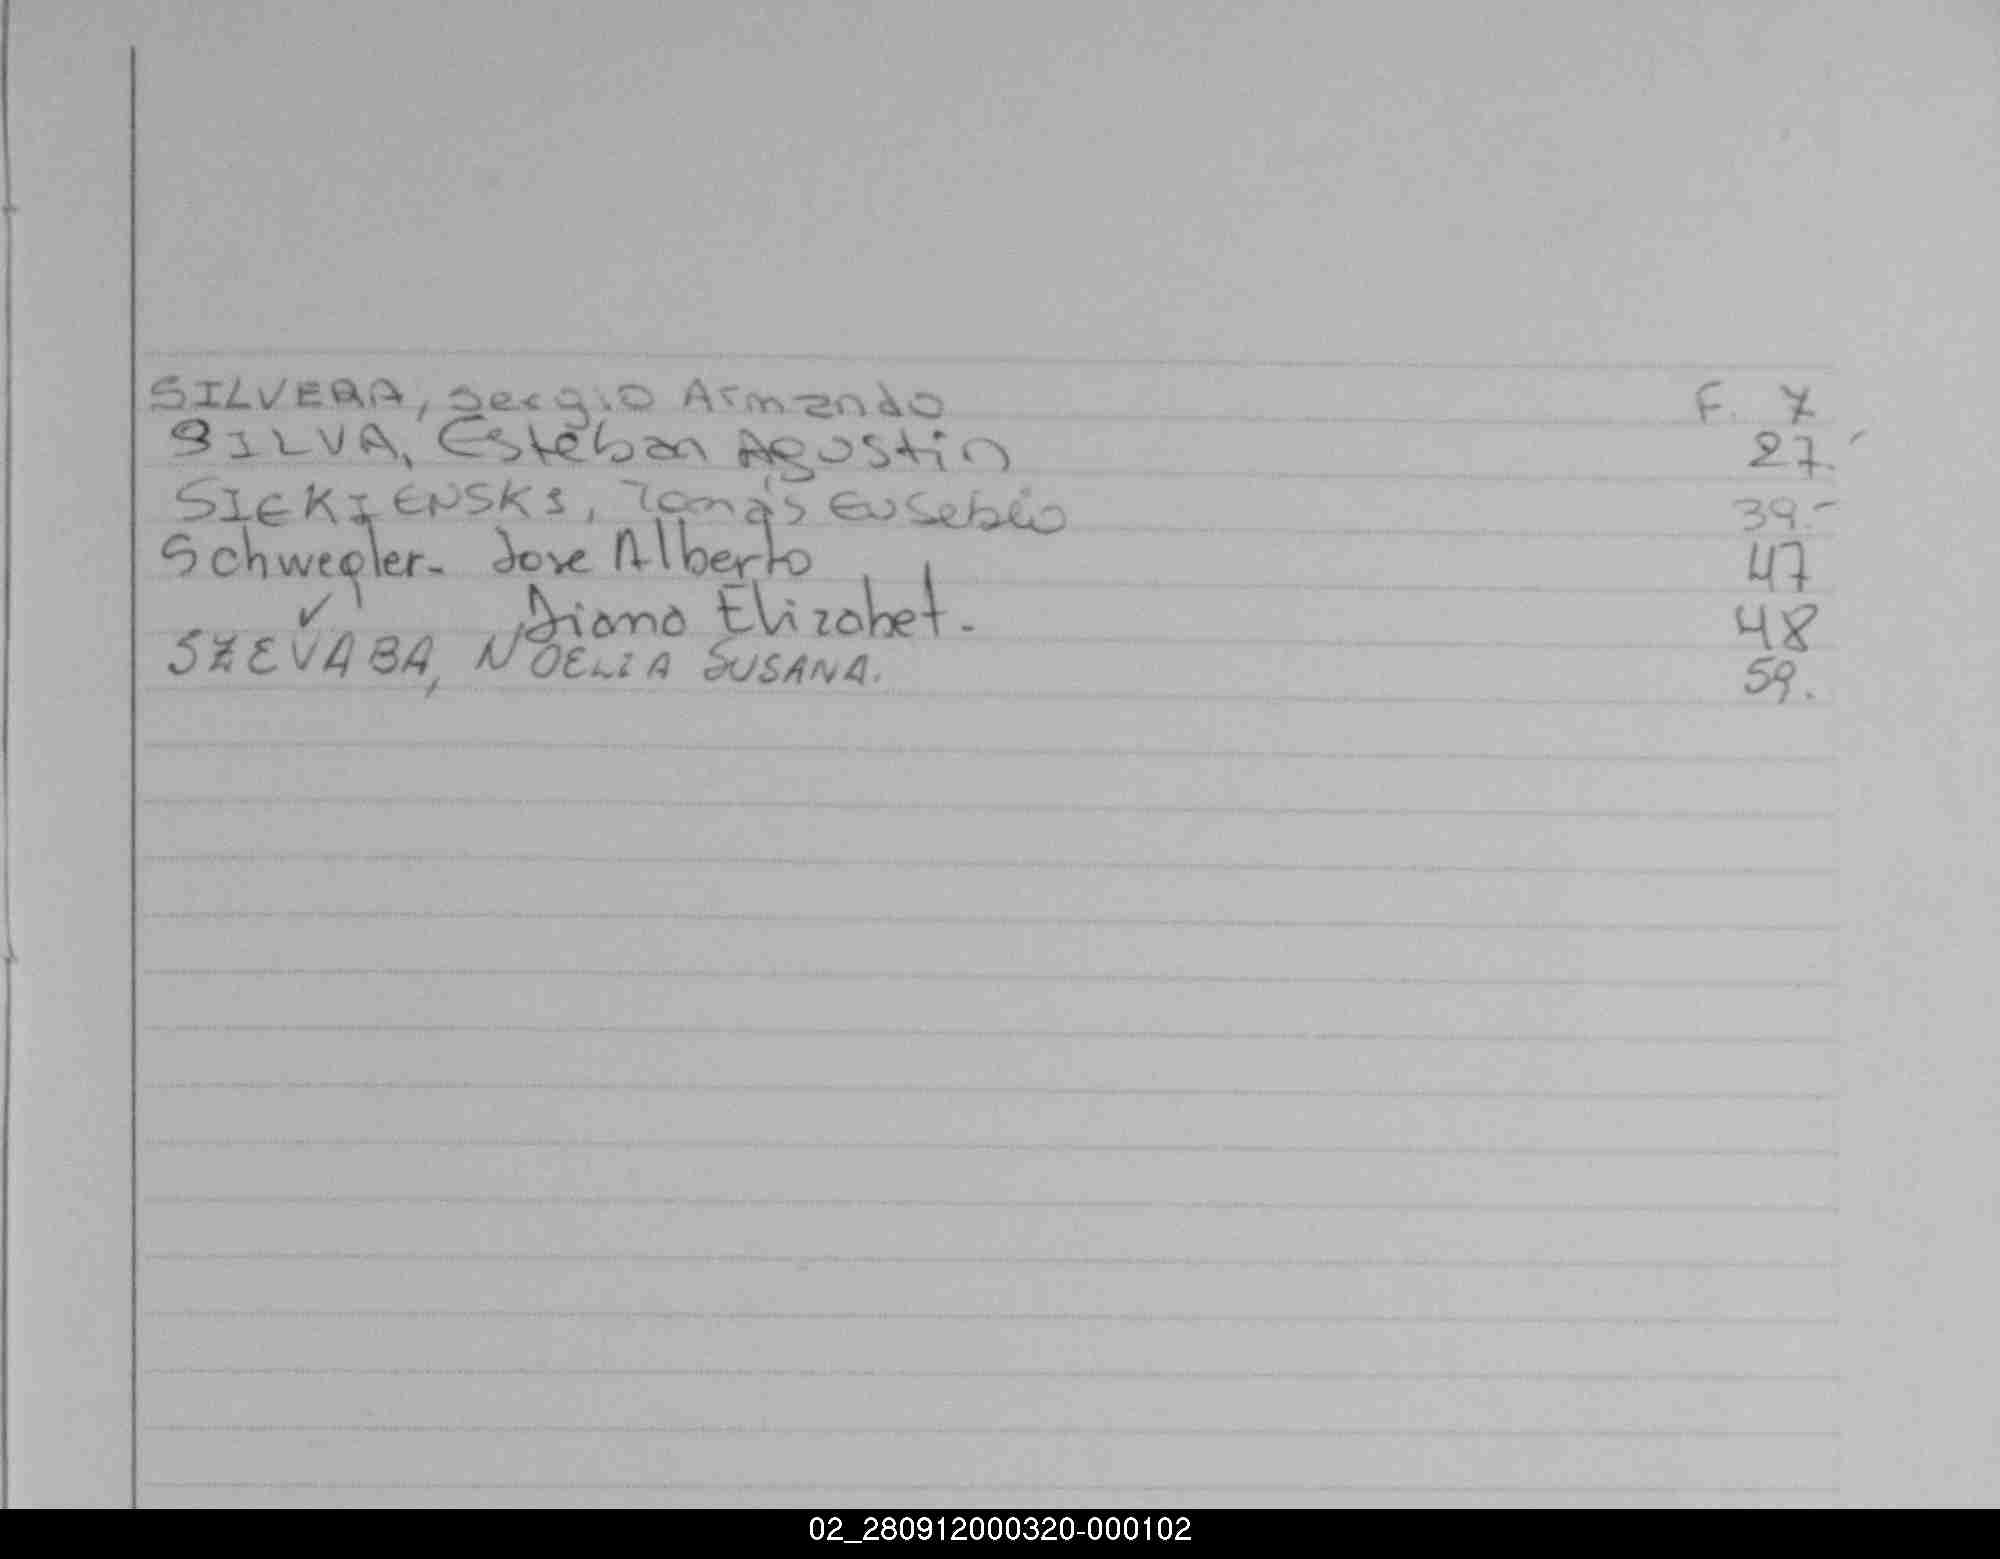 SILVERA, Sergio Armando F. 7
SILVA, Esteban Agustin 27.
SIEKIENSKI, Tomás Eusebio 39.-
Schwegler- Jose Alberto 47
✓ Diana Elizabet. 48
SZEVABA, NOELIA SUSANA. 59.
02_280912000320-000102